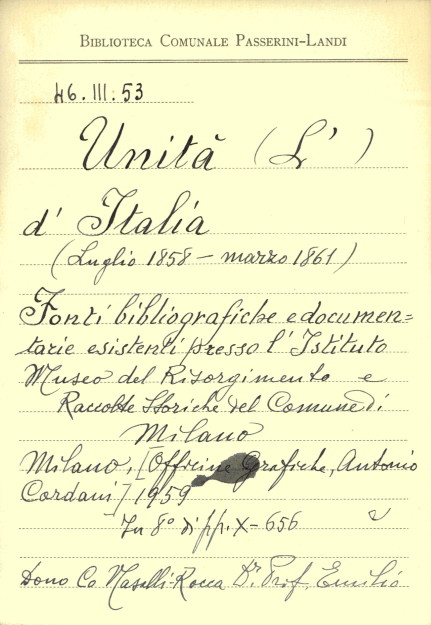 BIBLIOTECA COMUNALE PASSERINI-LANDI
46.III.53
Unità (L')
d'Italia
(Luglio 1858 – marzo 1861)
Fonti bibliografiche e documen=
tarie esistenti presso l'Istituto
Museo del Risorgimento e
Raccolte Storiche del Comune di
Milano
Milano, [Officine Grafiche, Antonio
Cordani] 1959
In 8° di pp. X-656
Dono Co Nasalli-Rocca Dr. Prof. Emilio